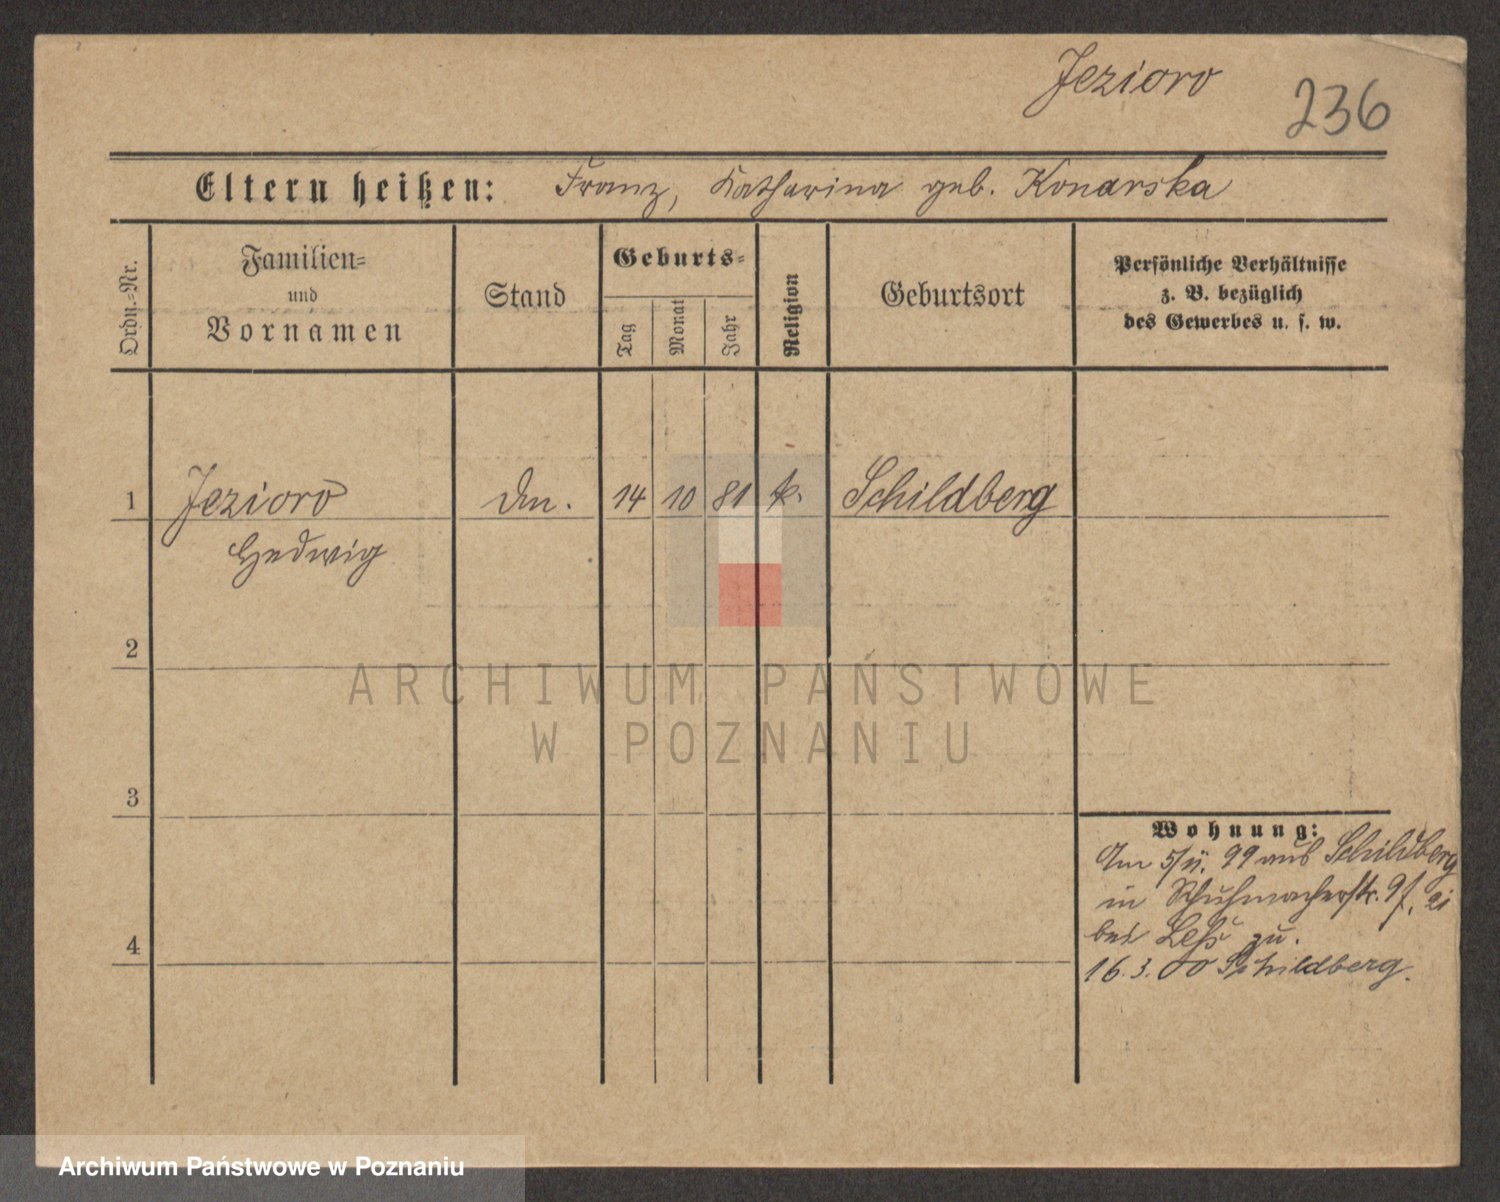 Jezioro
236
Eltern heißen: Franz, Katharina geb. Konarska
Ordn.=Nr.
Familien=
und
Vornamen
Stand
Geburts=
Tag
Monat
Jahr
Religion
Geburtsort
Persönliche Verhältnisse
z. B. bezüglich
des Gewerbes u. s. w.
1 Jezioro 14 10 81 k. Schildberg
Hedwig
2
3
4
Wohnung:
Am 5/11. 99 aus Schildberg
in Schuhmacherstr. 9
bei zu.
16.3.00 Schildberg.
ARCHIWUM PAŃSTWOWE
W POZNANIU
Archiwum Państwowe w Poznaniu